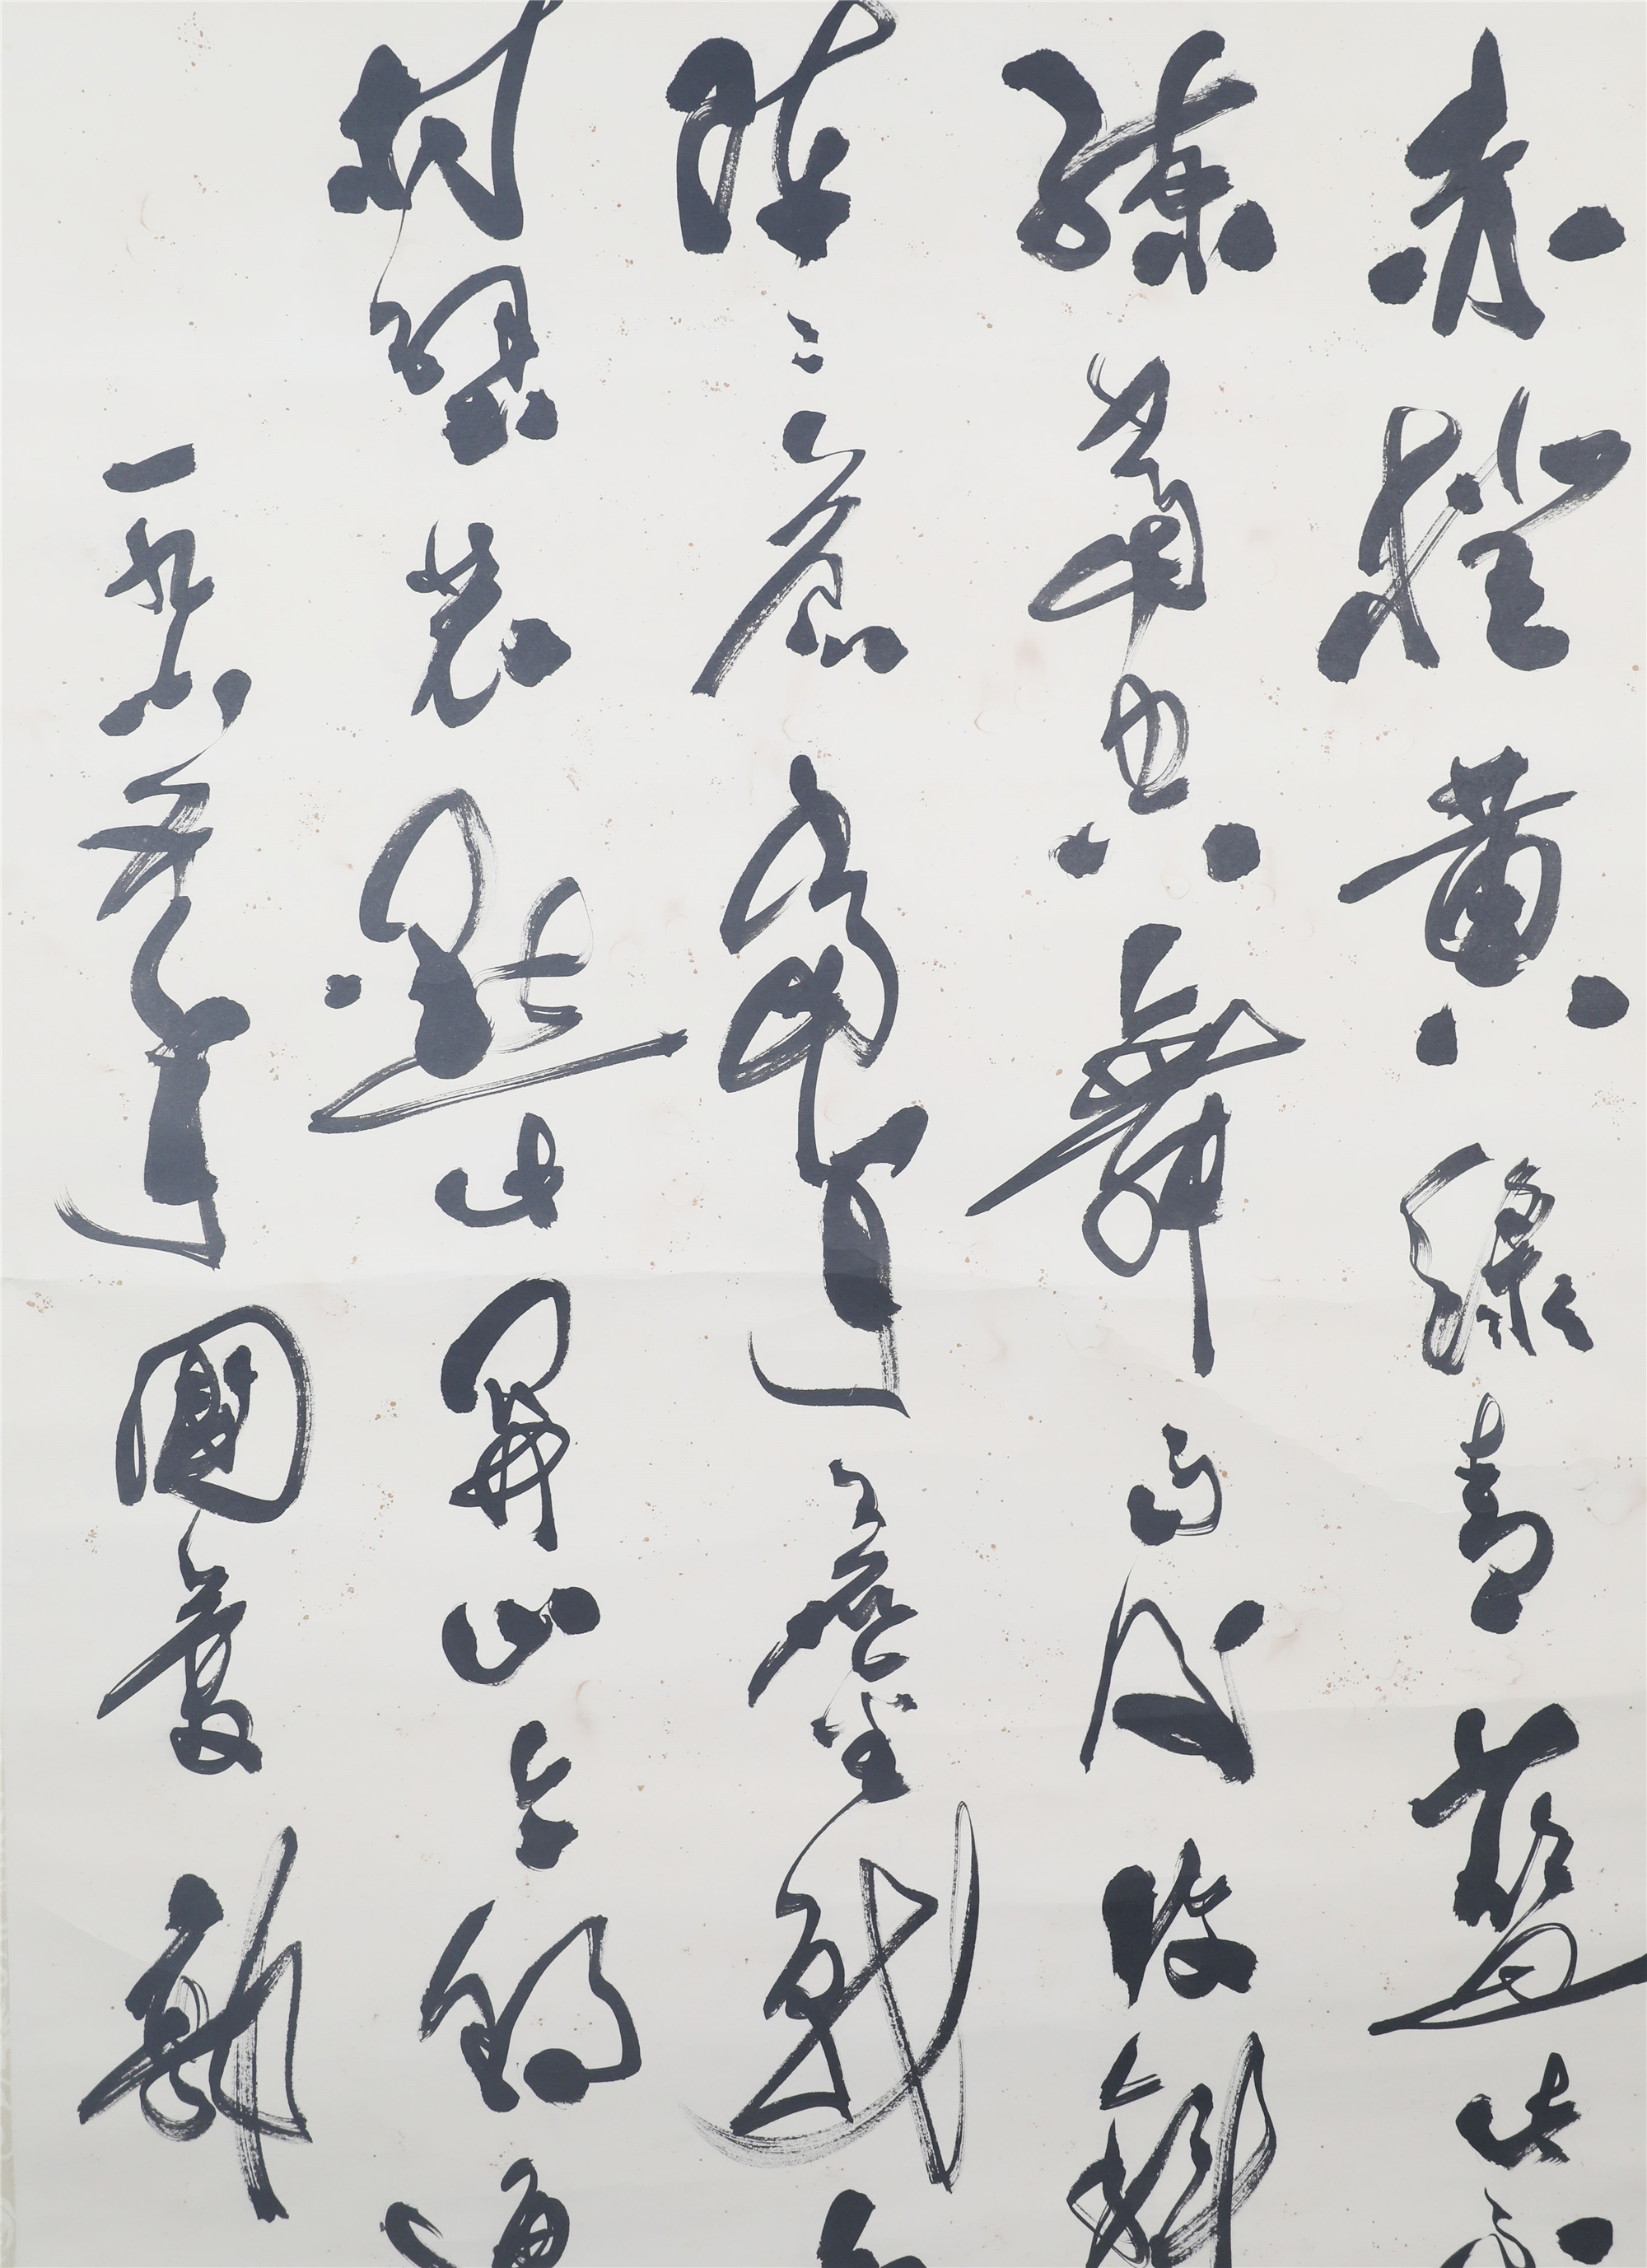 赤橙黄綠青藍紫
練當空舞雨後復斜
陣〻蒼當年鏖戰
村壁裝點此關山今朝
一九六 國慶